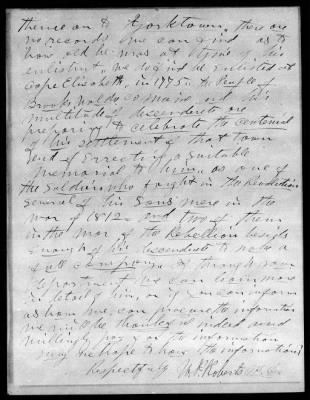 thence on to Yorktown, there are
no records one can find as to
how old he was at time of his
enlistmt, we do find he enlisted at
Cape Elisabeth, in 1775. the People of
Brooks, Waldo Co Maine, and his
multitude of descendents are
preparing to celebrate the centenial
of his settlement of that town
and of Errecting a suitable
memorial to him, as one of
the Soldiers who fought in the Revolution
Several of his Sons were in the
War of 1812 and two of them
in the War of the Rebellion besides
enough of his descendents to make a
full company. If through your
department we can learn more
in detail of him, or if you can inform
us how we can procure the information
we will be thankful indeed and
willingly pay for the information
we hope to have the information
Respectfully M. J. Roberts